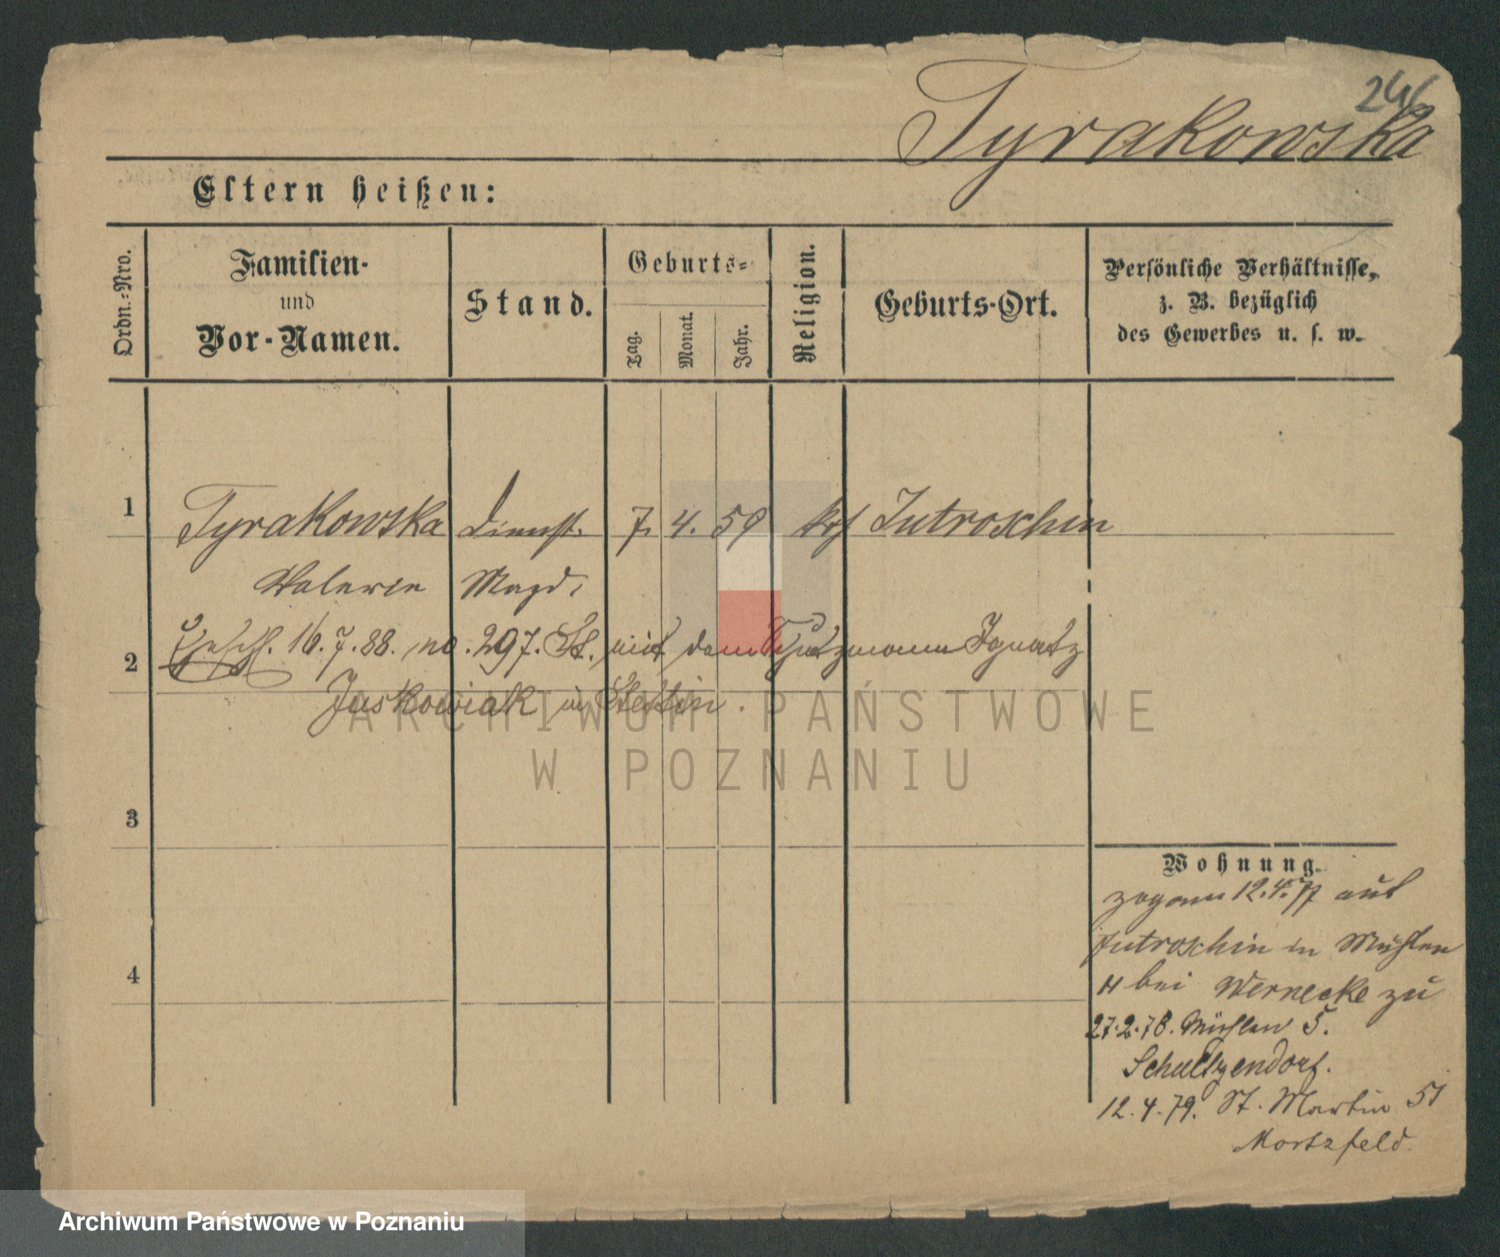 Tyrakowska
Eltern heißen:
Ordn.-Nro.
Familien-
und
Vor-Namen.
Stand.
Geburts-
Tag.
Monat.
Jahr.
Religion.
Geburts-Ort.
Persönliche Verhältnisse,
z. B. bezüglich
des Gewerbes u. s. w.
1 Tyrakowska Dienst- 7. 4. 59 Jutroschin
Valerie Magd.
2 16.7.88. no. 297. St. mit dem Schutzmann Ignatz
Juskowiak in Stettin.
3
4
Wohnung.
zogenn 12.4.77 aus
Jutroschin in Mühlen
bei Wernecke zu
27.2.78. Mühlen 5.
Schultzendorf.
12.4.79. St. Martin 51
Mortzfeld.
ARCHIWUM PAŃSTWOWE
W POZNANIU
Archiwum Państwowe w Poznaniu